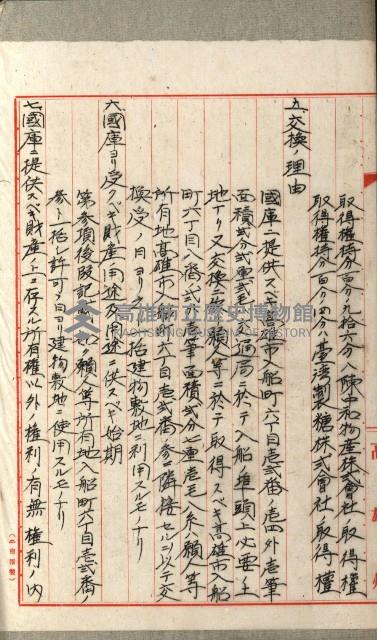 取得權持分百分ノ九拾六分ハ陳中和物產株式會社ノ取得
取得權持分百分ノ四分ハ臺灣製糖株式會社ノ取得權
五、交換ノ理由
國庫ニ提供スベキ高雄市入船町六丁目壱弐番ノ壱四外壱筆
面積弐分弐厘弐毛ハ交通局ニ於テ入船埠頭上必要ノ土
地ナリ又交換ニ依リ願人等ニ於テ取得スベキ高雄市入船
町六丁目八番ノ弐外壱筆面積弐分七厘壱毛八糸ハ願人等
所有地高雄市入船町六丁目壱弐番ノ參ニ隣接セルヲ以テ交
換受ノ日ヨリ一括建物敷地ニ利用スルモノナリ
六、國庫ヨリ受クベキ財產ノ用途及用途ニ供スベキ始期
第參項後段記載ノ如ク願人等所有地入船町六丁目壱弐番ノ
參ト一括シ許可ノ日ヨリ建物敷地ニ使用スルモノナリ
七、國庫ニ提供スベキ財產ノ上ニ存スル所有權以外ノ權利ノ有無權利ノ內
高雄市立歷史博物館
KAOHSIUNG MUSEUM OF HISTORY